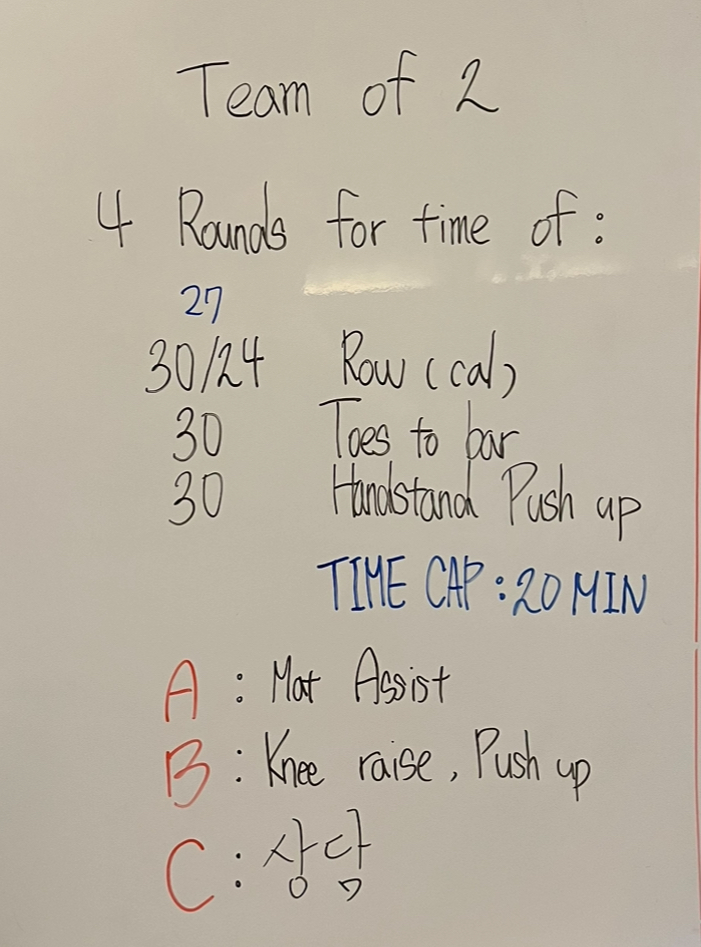 Team of 2
4 Rounds for time of :
27
30/24 Row (cal)
30 Toes to bar
30 Handstand Push up
TIME CAP : 20 MIN
A : Mat Assist
B : Knee raise, Push up
C : 상담